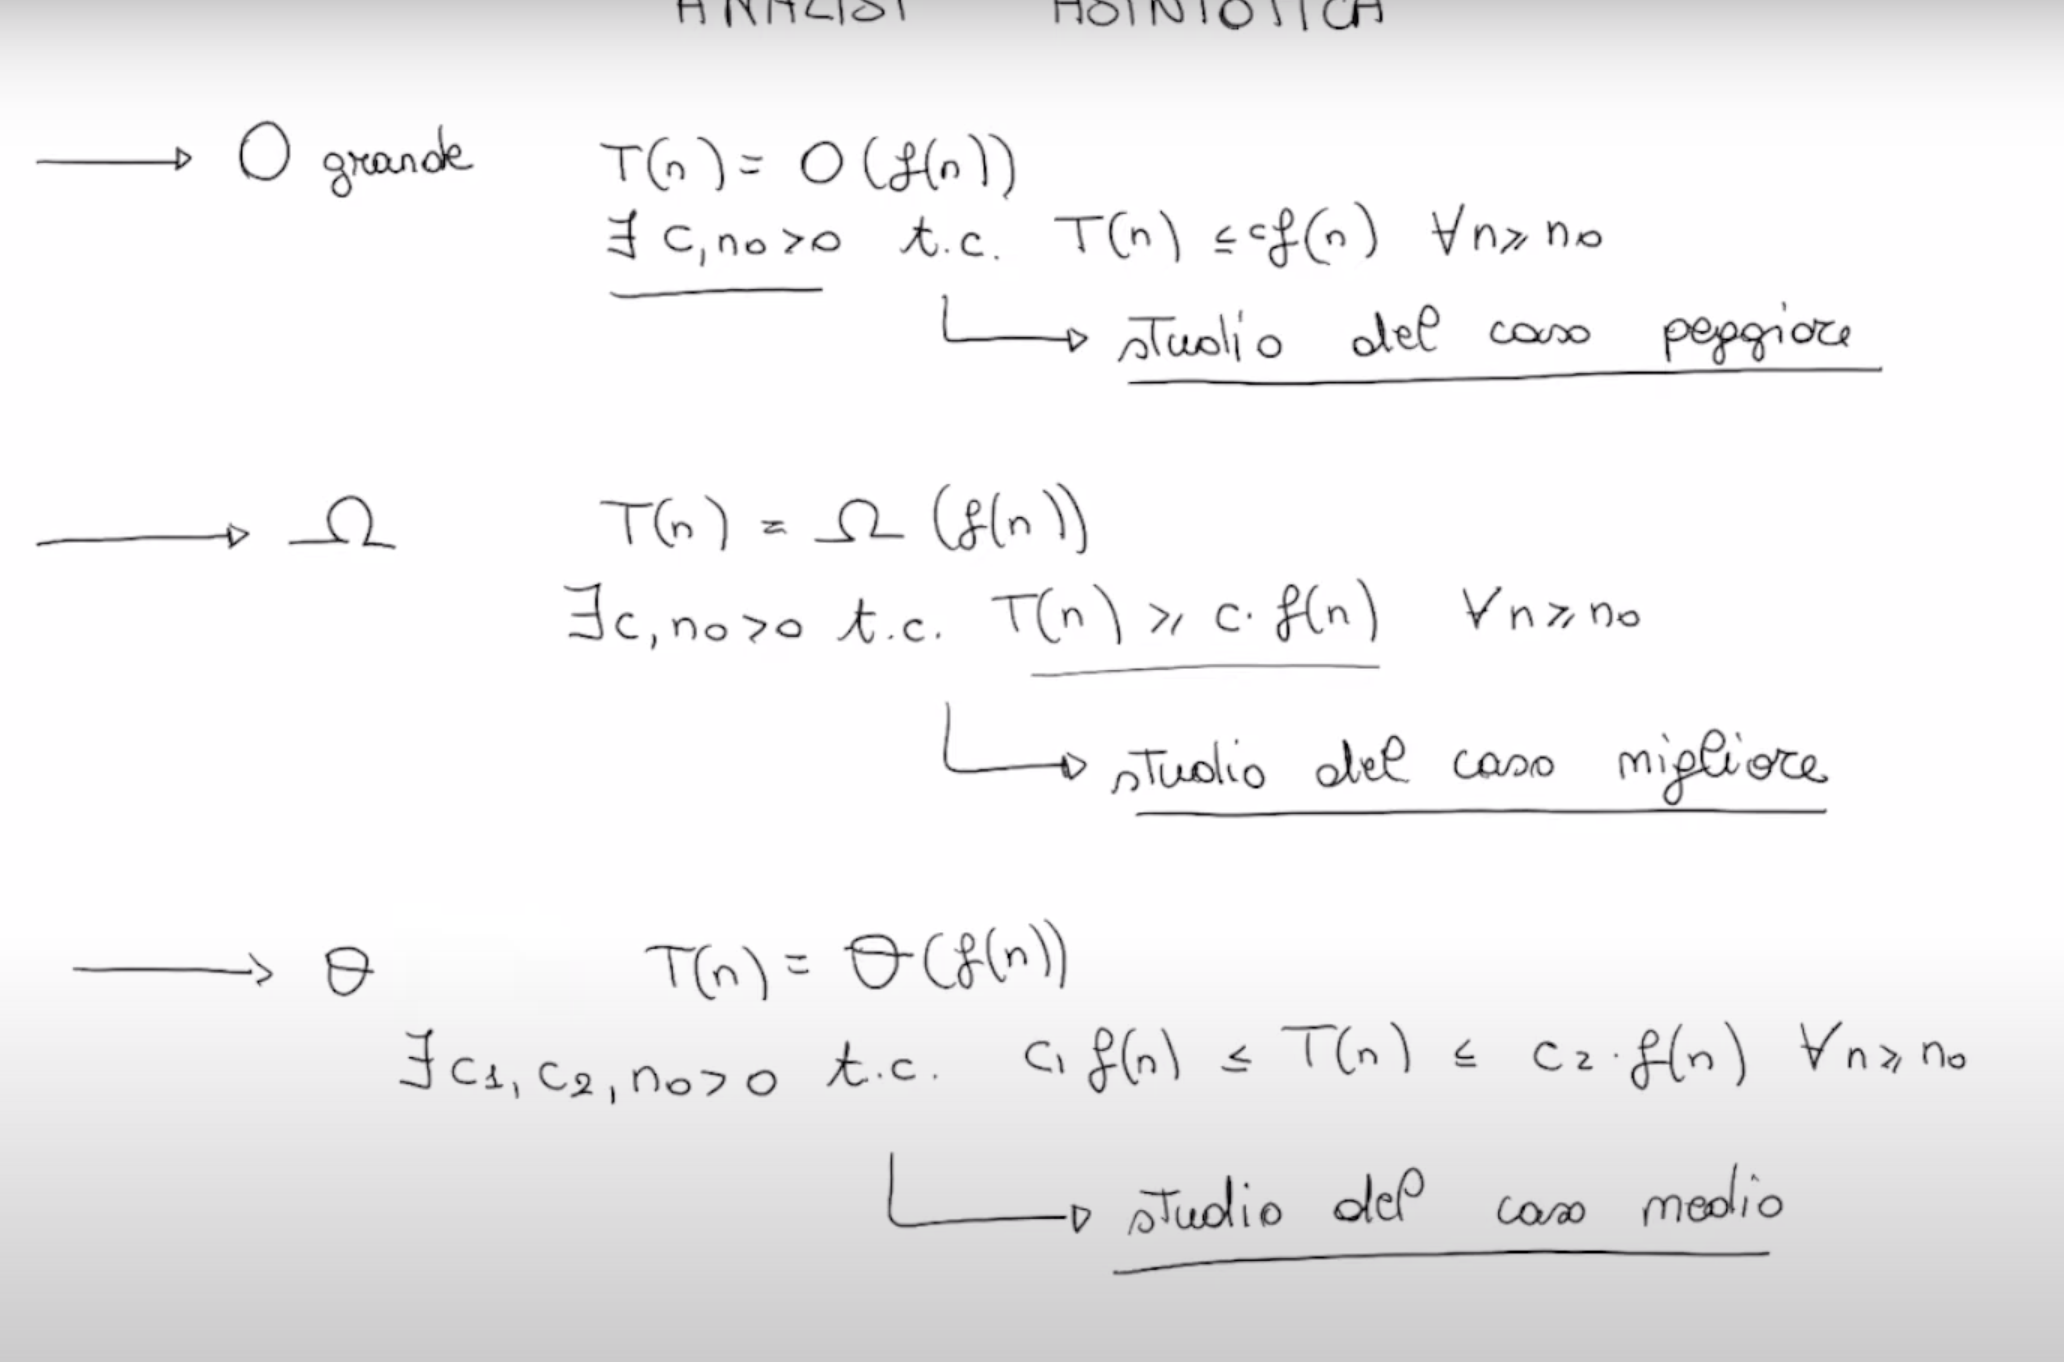 ANALISI ASINTOTICA
O grande T(n) = O(f(n))
∃ c, n0 > 0 t.c. T(n) ≤ c f(n) ∀n ≥ n0
studio del caso peggiore
Ω T(n) = Ω (f(n))
∃ c, n0 > 0 t.c. T(n) ≥ c · f(n) ∀n ≥ n0
studio del caso migliore
θ T(n) = θ (f(n))
∃ c1, c2, n0 > 0 t.c. c1 f(n) ≤ T(n) ≤ c2 · f(n) ∀n ≥ n0
studio del caso medio